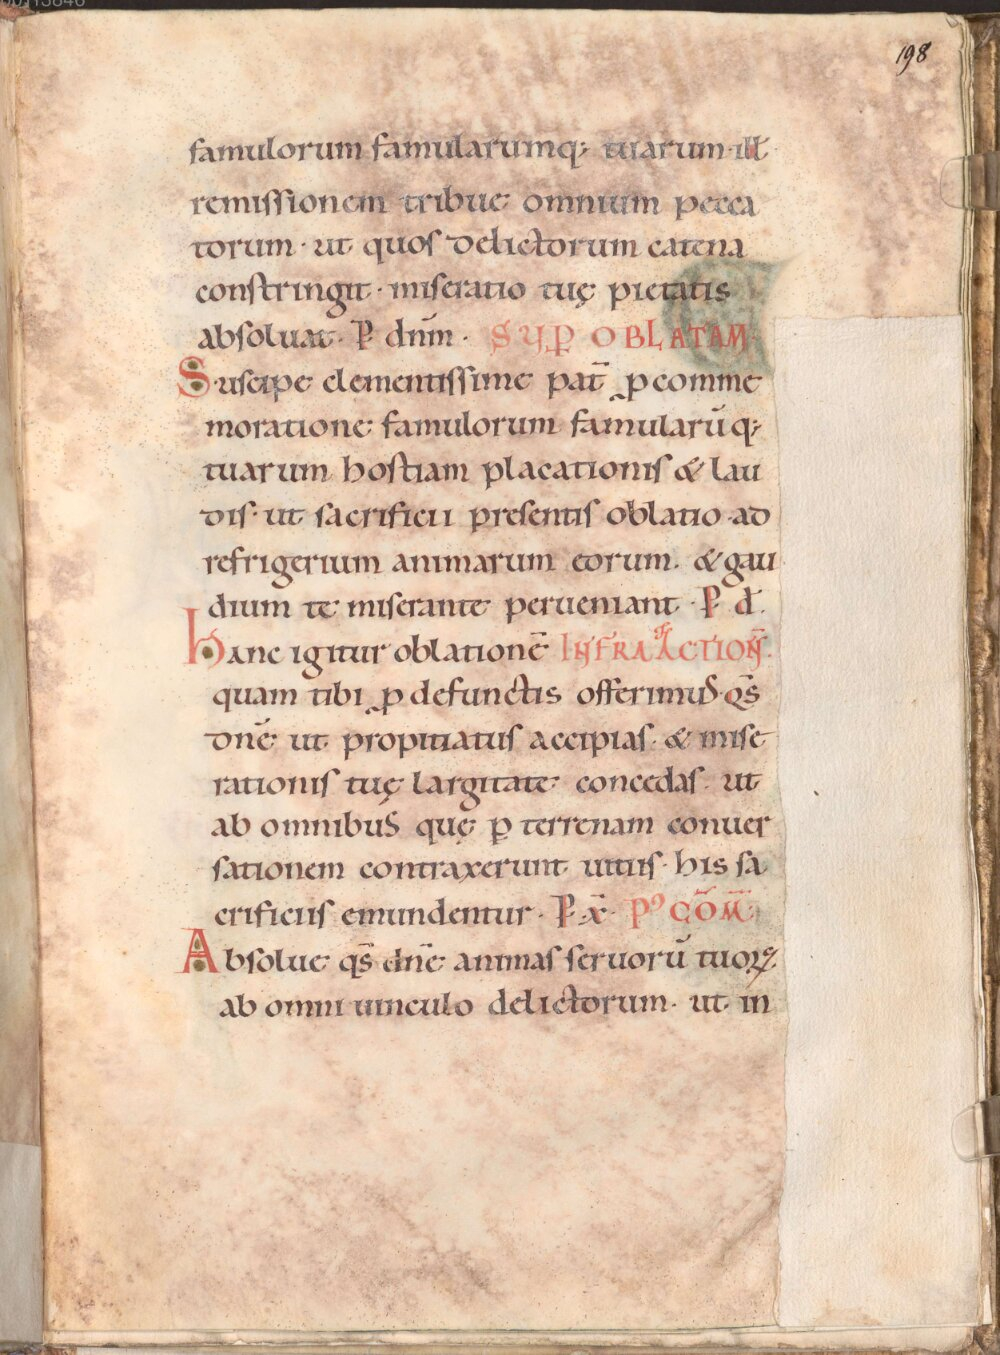 198
famulorum famularumq; tuarum ill̅
remissionem tribue omnium pecca
torum · ut quos delictorum catena
constringit · miseratio tuę pietatis
absoluat · P̱ dnm̅ · SUP̱ OBLATAM·
Suscipe clementissime pat̅ ꝓ comme
moratione famulorum famularu̅q;
tuarum hostiam placationis & lau
dis· ut sacrificii presentis oblatio ad
refrigerium animarum eorum· & gau
dium te miserante perueniant · P̱ d̅.
hanc igitur oblatione̅ INFRA ACTION̅·
quam tibi ꝓ defunctis offerimus qs̅
dne̅ ut propitiatus accipias · & mise
rationis tuę largitate concedas · ut
ab omnibus quę ꝑ terrenam conuer
sationem contraxerunt uitiis · his sa
crificiis emundentur · P̱ x̅· Pꝰ CO̅M̅
Absolue qs̅ dne̅ animas seruoru̅ tuoꝝ
ab omni uinculo delictorum · ut in